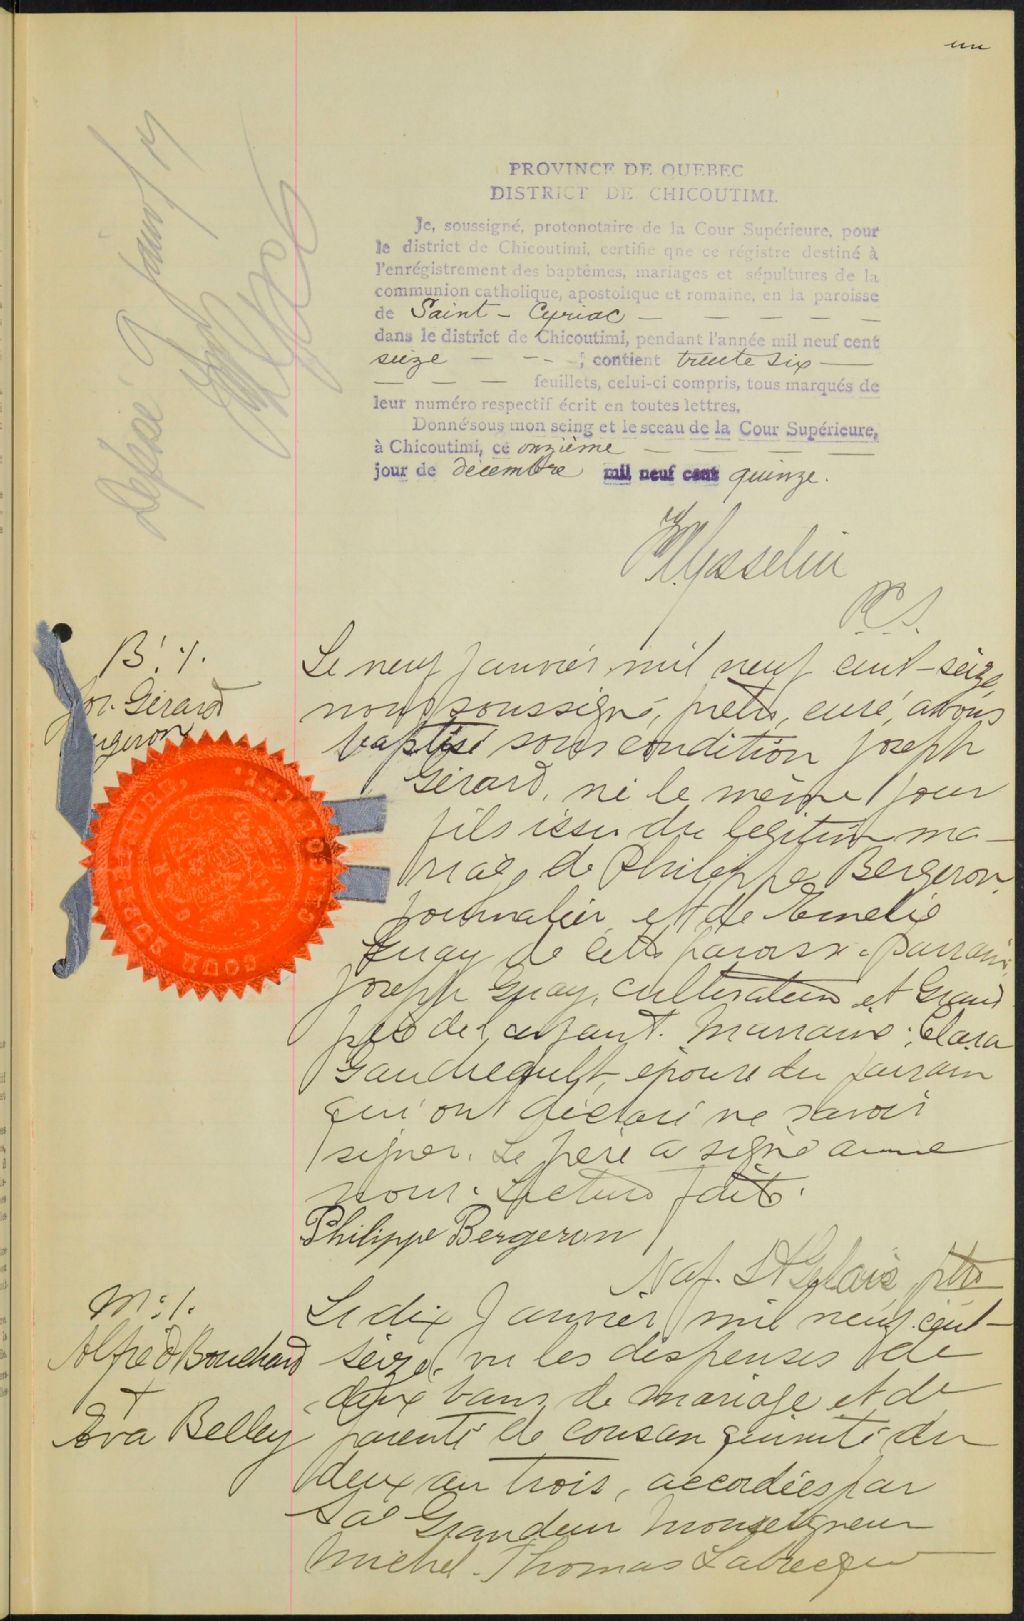 un
Déposé 9 janv/17
PROVINCE DE QUEBEC
DISTRICT DE CHICOUTIMI.
Je, soussigné, protonotaire de la Cour Supérieure, pour
le district de Chicoutimi, certifie que ce régistre destiné à
l'enrégistrement des baptêmes, mariages et sépultures de la
communion catholique, apostolique et romaine, en la paroisse
de Saint-Cyriac — — — — —
dans le district de Chicoutimi, pendant l'année mil neuf cent
seize — - - ; contient trente six —
— — — feuillets, celui-ci compris, tous marqués de
leur numéro respectif écrit en toutes lettres.
Donné sous mon seing et le sceau de la Cour Supérieure,
à Chicoutimi, ce onzième — — — —
jour de décembre mil neuf cent quinze.
Gosselin
P.C.S.
B. 1.
Jos. Gérard
Bergeron
Le neuf Janvier mil neuf cent-seize
nous soussigné, prêtre, curé, avons
baptisé sous condition Joseph
Gérard, né le même jour
fils issu du légitime ma-
riage de Philippe Bergeron,
journalier et de Emelie
Guay de cette paroisse. Parrain,
Joseph Guay, cultivateur et Grand
père de l'enfant. Marraine: Clara
Gaudreault, épouse du parrain
qui ont déclaré ne savoir
signer. Le père a signé avec
nous. Lecture faite.
Philippe Bergeron
Nap. St Gelais ptre
M: 1.
Alfred Bouchard
+
Eva Belley
Le dix Janvier mil neuf cent-
seize, vu les dispenses de
deux bans de mariage et de
parenté de consanguinité du
deux au trois, accordées par
Sa Grandeur Monseigneur
Michel-Thomas Labrecque